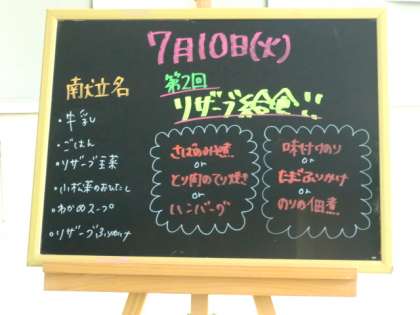 7月10日(火)
第2回
リザーブ給食!!
献立名
・牛乳
・ごはん
・リザーブ主菜
・小松菜のおひたし
・わかめスープ
・リザーブふりかけ
さばのみそ煮
or
とり肉のてり焼き
or
ハンバーグ
味付けのり
or
たまごふりかけ
or
のりの佃煮